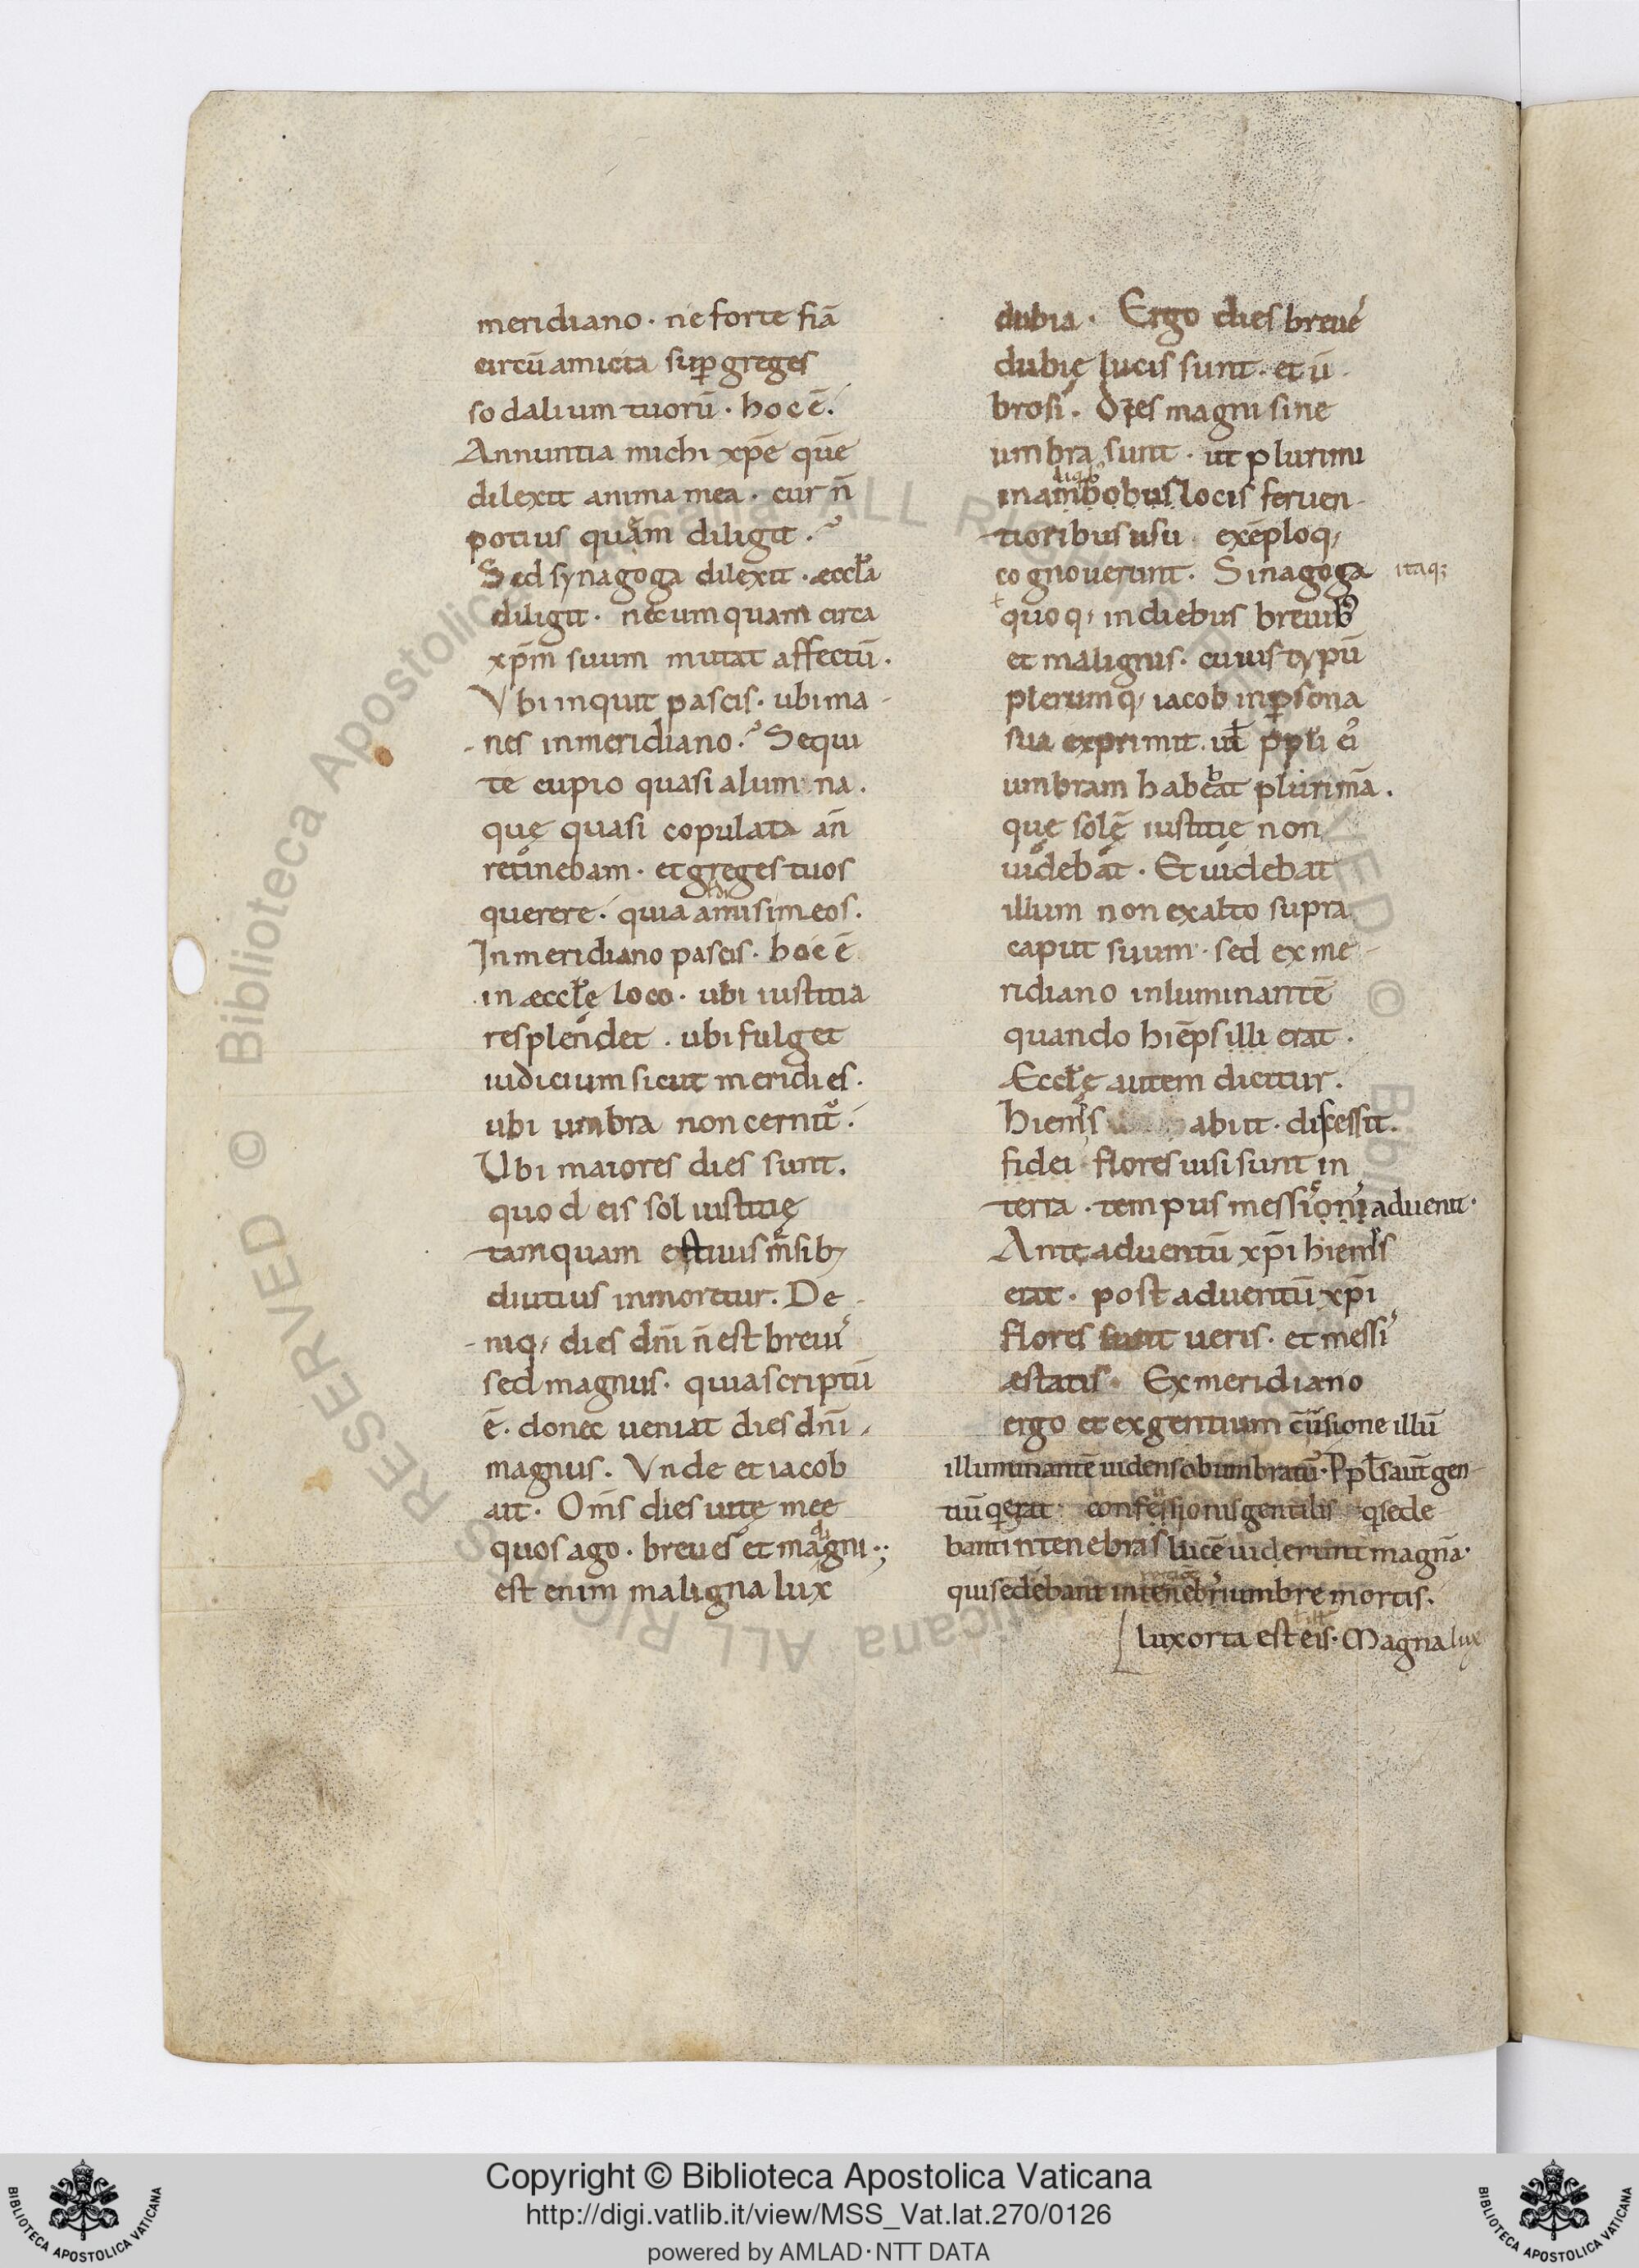 meridiano · ne forte fiā
circū amicta sup greges
sodalium tuorū · hoc ē.
Annuntia michi xp̄e quē
dilexit anima mea · cur n̄
potius quam diligit .
Sed synagoga dilexit · æccl̄a
diligit · nec umquam circa
xp̄m suum mutat affectū.
Vbi inquit pascis · ubi ma-
-nes in meridiano. Sequi
te cupio quasi alumna.
quę quasi copulata an̄
retinebam · et greges tuos
querere. quia amisi meos.
In meridiano pascis · hoc ē
in æccl̄ę loco · ubi iustitia
resplendet . ubi fulget
iudicium sicut meridies.
ubi umbra non cernit.
Ubi maiores dies sunt.
quod eis sol iustitię
tamquam estiuis m̄sib;
diutius inmoretur. De-
-niq; dies dn̄i n̄ est breuis
sed magnus · quia scriptū
ē · donec ueniat dies dn̄i.
magnus. Vnde et iacob
ait · Om̄s dies uitę meę
quos ago · breues et magni
est enim maligna lux
dubia · Ergo dies breue
dubię lucis sunt · et ū-
brosi · Dies magni sine
umbra sunt · ut plurimi
in ambobus locis feruen-
tioribus usu exēploq;
cognouerunt. Sinagoga itaq;
quoq; in diebus breuib;
et malignis · cuius typū
plerumq; iacob in psona
sua exprimit ppl̄i ei
umbram habeat plurimā.
que solē iustitię non
uidebat · Et uidebat
illum non ex alto supra
caput suum · sed ex me-
ridiano inluminantē
quando hiēps illi erat.
Æccl̄ę autem dicitur.
hiems abiit · discessit.
fidei flores uisi sunt in
terra · tempus messionis aduenit·
Ante aduentū xp̄i hiems
erat · post aduentū xp̄i
flores sunt ueris · et messis
æstatis · Ex meridiano
ergo et ex gentium cūsione illū
illuminantē uidens obumbratū · Ppl̄s aut̄ gen-
tiū q erat confessionis gentilis q sede
bant in tenebras lucē uiderunt magnā·
qui sedebant in tenebris umbre mortis.
lux orta est eis · Magna lux
Copyright © Biblioteca Apostolica Vaticana
http://digi.vatlib.it/view/MSS_Vat.lat.270/0126
powered by AMLAD·NTT DATA
BIBLIOTECA APOSTOLICA VATICANA
BIBLIOTECA APOSTOLICA VATICANA